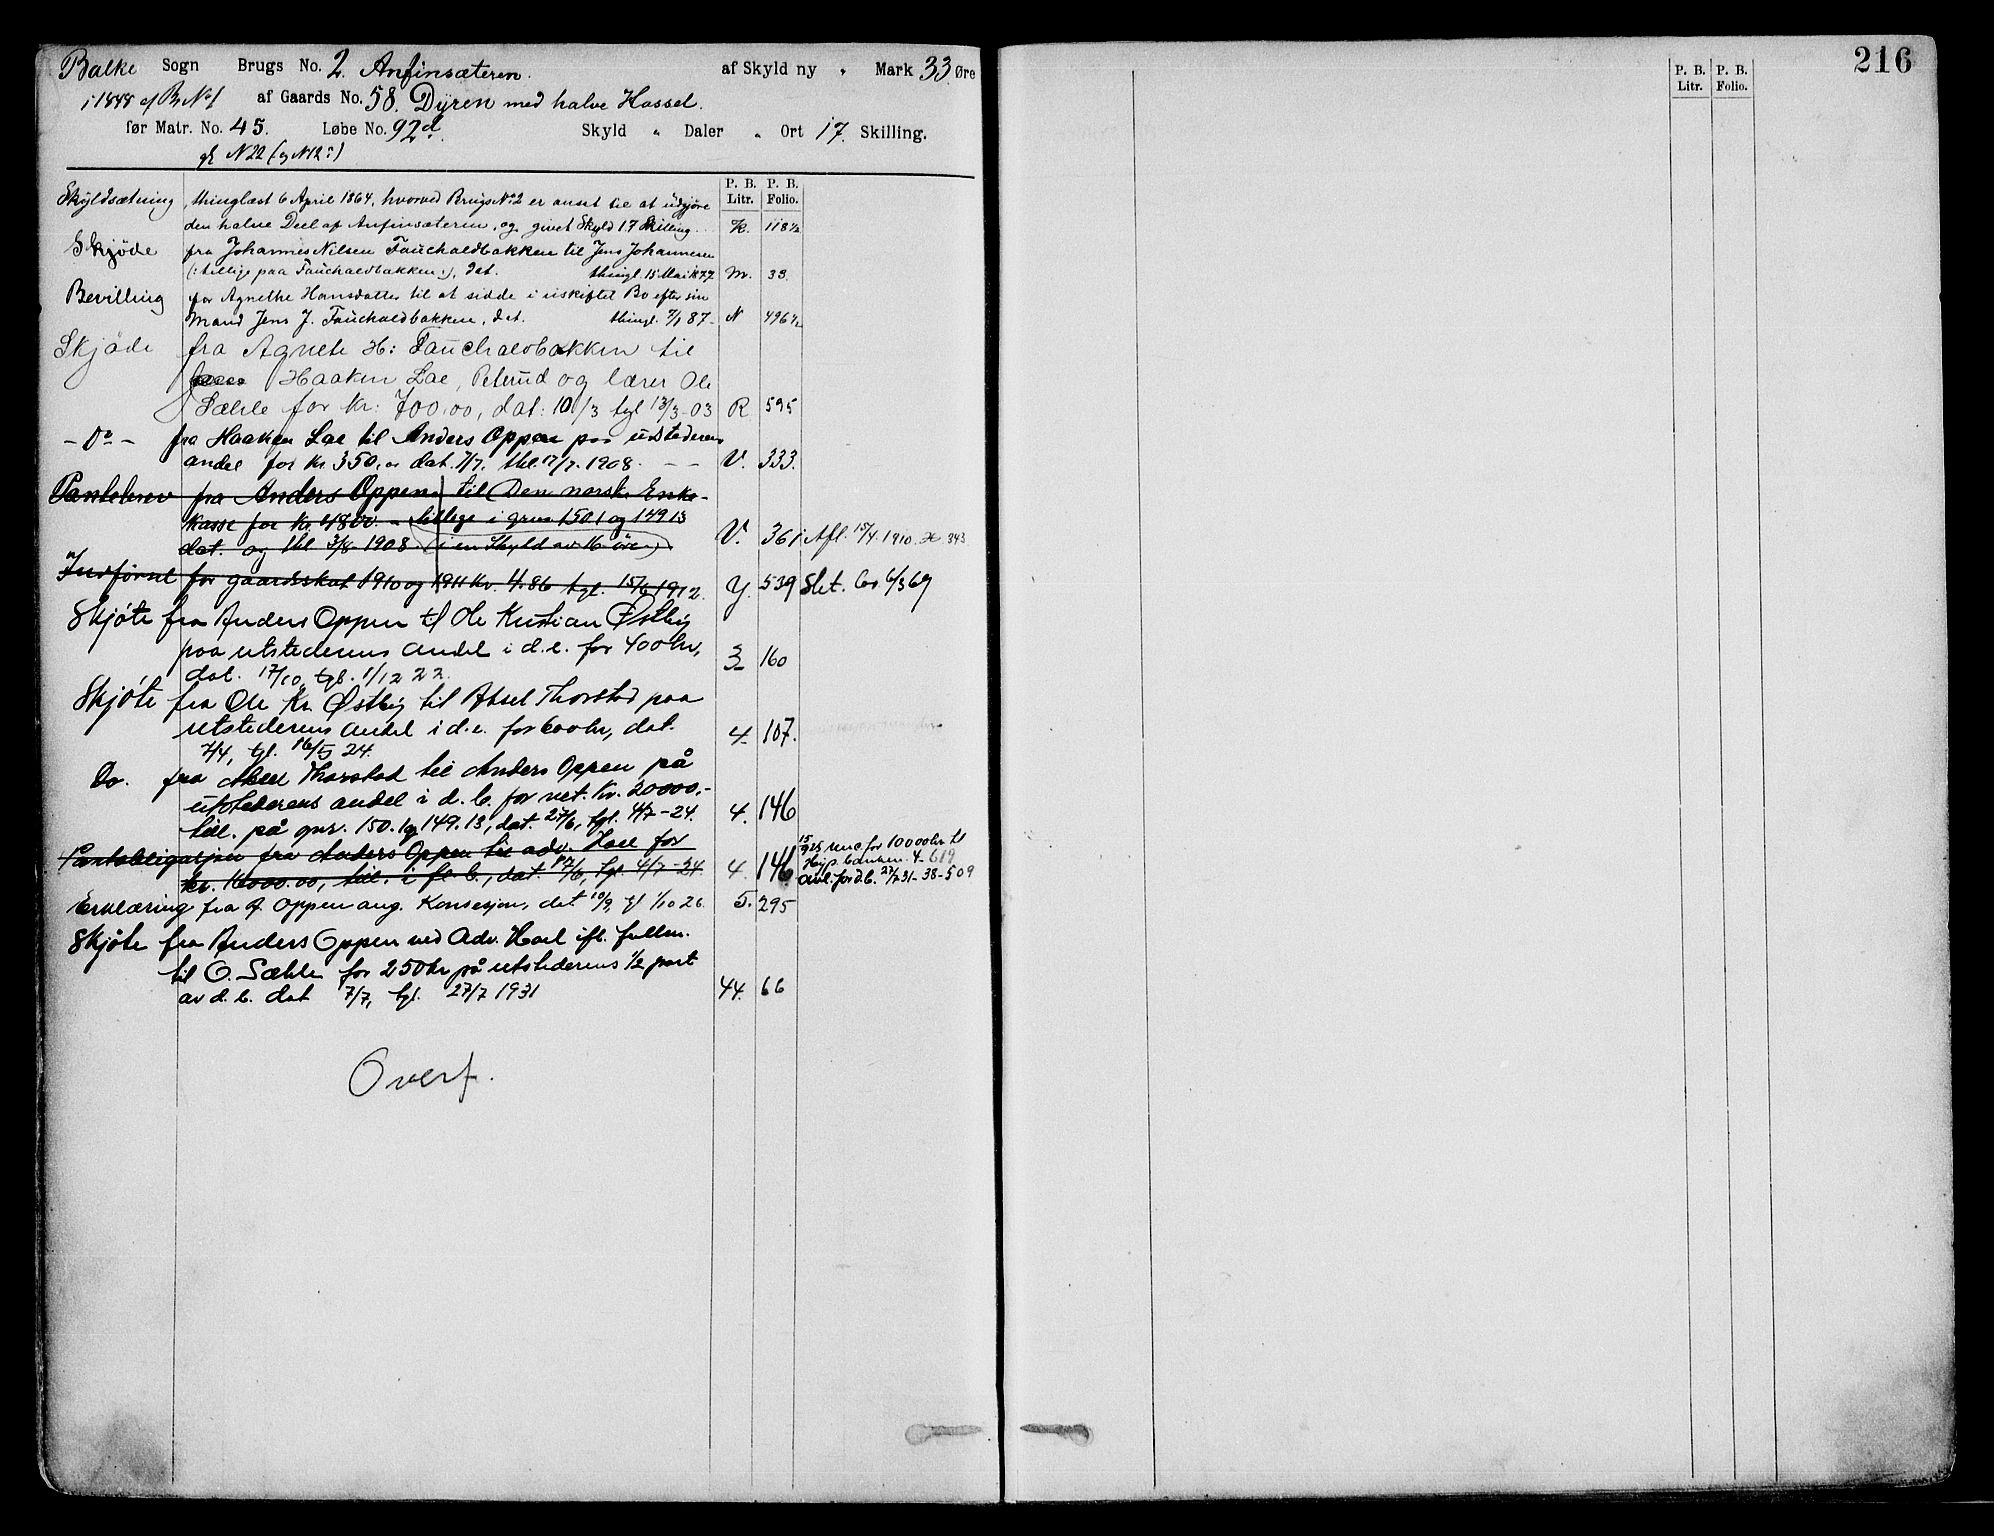 216
Balke Sogn Brugs No. 2. Anfinsæteren. af Skyld ny " Mark 33 Øre
i 1848 af B. No 1 af Gaards No. 58. Dyren med halve Hassel.
før Matr. No. 45. Løbe No. 92d. Skyld " Daler " Ort 17. Skilling.
N 22 (og N 12:)
P. B. Litr. P. B. Folio.
P. B. Litr. P. B. Folio.
Skyldsætning thinglæst 6 April 1864, hvorved Brugs No 2 er anset til at udgjøre
den halve Deel af Anfinsæteren, og givet Skyld 17 Skilling. K. 118 1/2
Skjøde fra Johannes Nilsen Fauchaldbakken til Jens Johannesen
(: tillige paa Fauchaldbakken:), dat. thingl. 15 Mai 1877 M. 33.
Bevilling for Agnethe Hansdatter til at sidde i uskiftet Bo efter sin
Mand Jens J. Fauchaldbakken, dat. thingl. 7/1 87 N 496 1/2
Skjøde fra Agnete H: Fauchaldbakken til
Haaken Lae, Peterud og lærer Ole
Sæhle for kr: 700,00, dat: 10/3 tgl 13/3-03 R 595
- Do - fra Haaken Lae til Anders Oppen paa udstederens
andel for kr 350,00 dat. 7/7. thl. 17/7. 1908. - - V. 333.
Pantebrev fra Anders Oppen til Den norske Enke-
kasse for kr. 4800 - tillige i grno 150 1 og 149 13
dat. og thl 3/8-1908. (i en Skyld av 16 øre) V. 361 Afl. 15/4. 1910. 343
Indførsel for gaardsskat 1910 og 1911 kr. 4.86 tgl. 15/6 1912. Y. 539 Slet. 6/3 69
Skjøte fra Anders Oppen til Ole Kristian Østby
paa utstederens andel i d.e. for 400 kr,
dat. 17/10, tgl. 1/12 22. 3 160
Skjøte fra Ole Kr. Østby til Aksel Thorstad paa
utstederens andel i d.e. for 600 kr, dat.
7/4, tgl. 16/5 24. 4 107.
Do. fra Aksel Thorstad til Anders Oppen på
utstederens andel i d. b. for vet. kr. 20000,-
till. på gnr. 150.1 og 149.13, dat. 27/6, tgl. 4/7-24. 4. 146
Pantobligasjon fra Anders Oppen til adv. Hoel for
kr. 16000.00, till. i fl. b., dat. 27/6, tgl. 4/7-24. 4. 146 15/9 25 for 10000 kr til
Hyp. banken. 4-619
Avl. for d.b. 27/7 31-38-509
Erklæring fra A. Oppen ang. Konsesjon, dat 10/9, tgl 1/10 26. 5. 295
Skjøte fra Anders Oppen ved Adv. Hoel ifl. fullm.
til O. Sæhle for 250 kr på utstederens 1/2 part
av d. b. dat 7/7, tgl. 27/7 1931 44. 66
Overf.